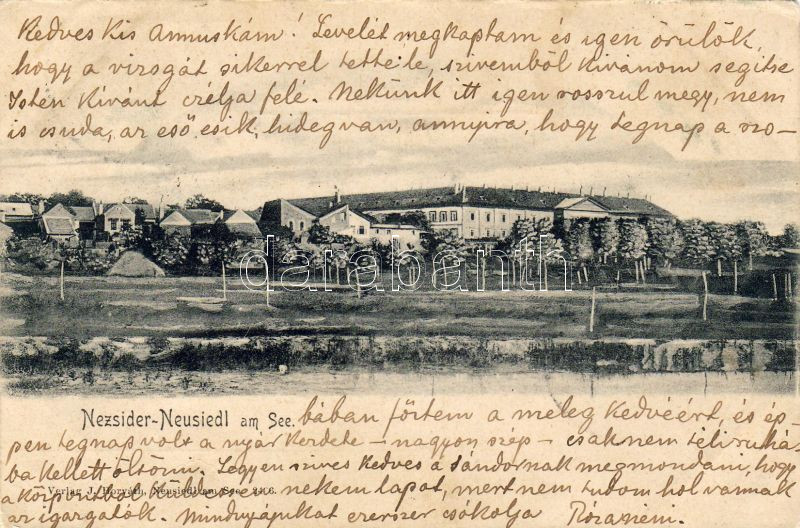 Kedves Kis Annuskám! Levelét megkaptam és igen örülök,
hogy a vizsgát sikerrel tette le, szivemből kivánom segitse
Isten kivánt czélja felé. Nekünk itt igen rosszul megy, nem
is csuda, az eső esik, hideg van, annyira, hogy tegnap a szo-
darabanth.com
Nezsider-Neusiedl am See.
bában fűtem a meleg kedvéért, és ép-
pen tegnap volt a nyár kezdete – nagyon szép – csaknem téli ruhá-
ba kellett öltözni. Legyen szives kedves a Sándornak megmondani, hogy
a központból küldjenek nekem lapot, mert nem tudom hol vannak
Verlag J. Horváth, Neusiedl am See. 2406.
az igazgatók. Mindnyájukat ezerszer csókolja Rózanéni